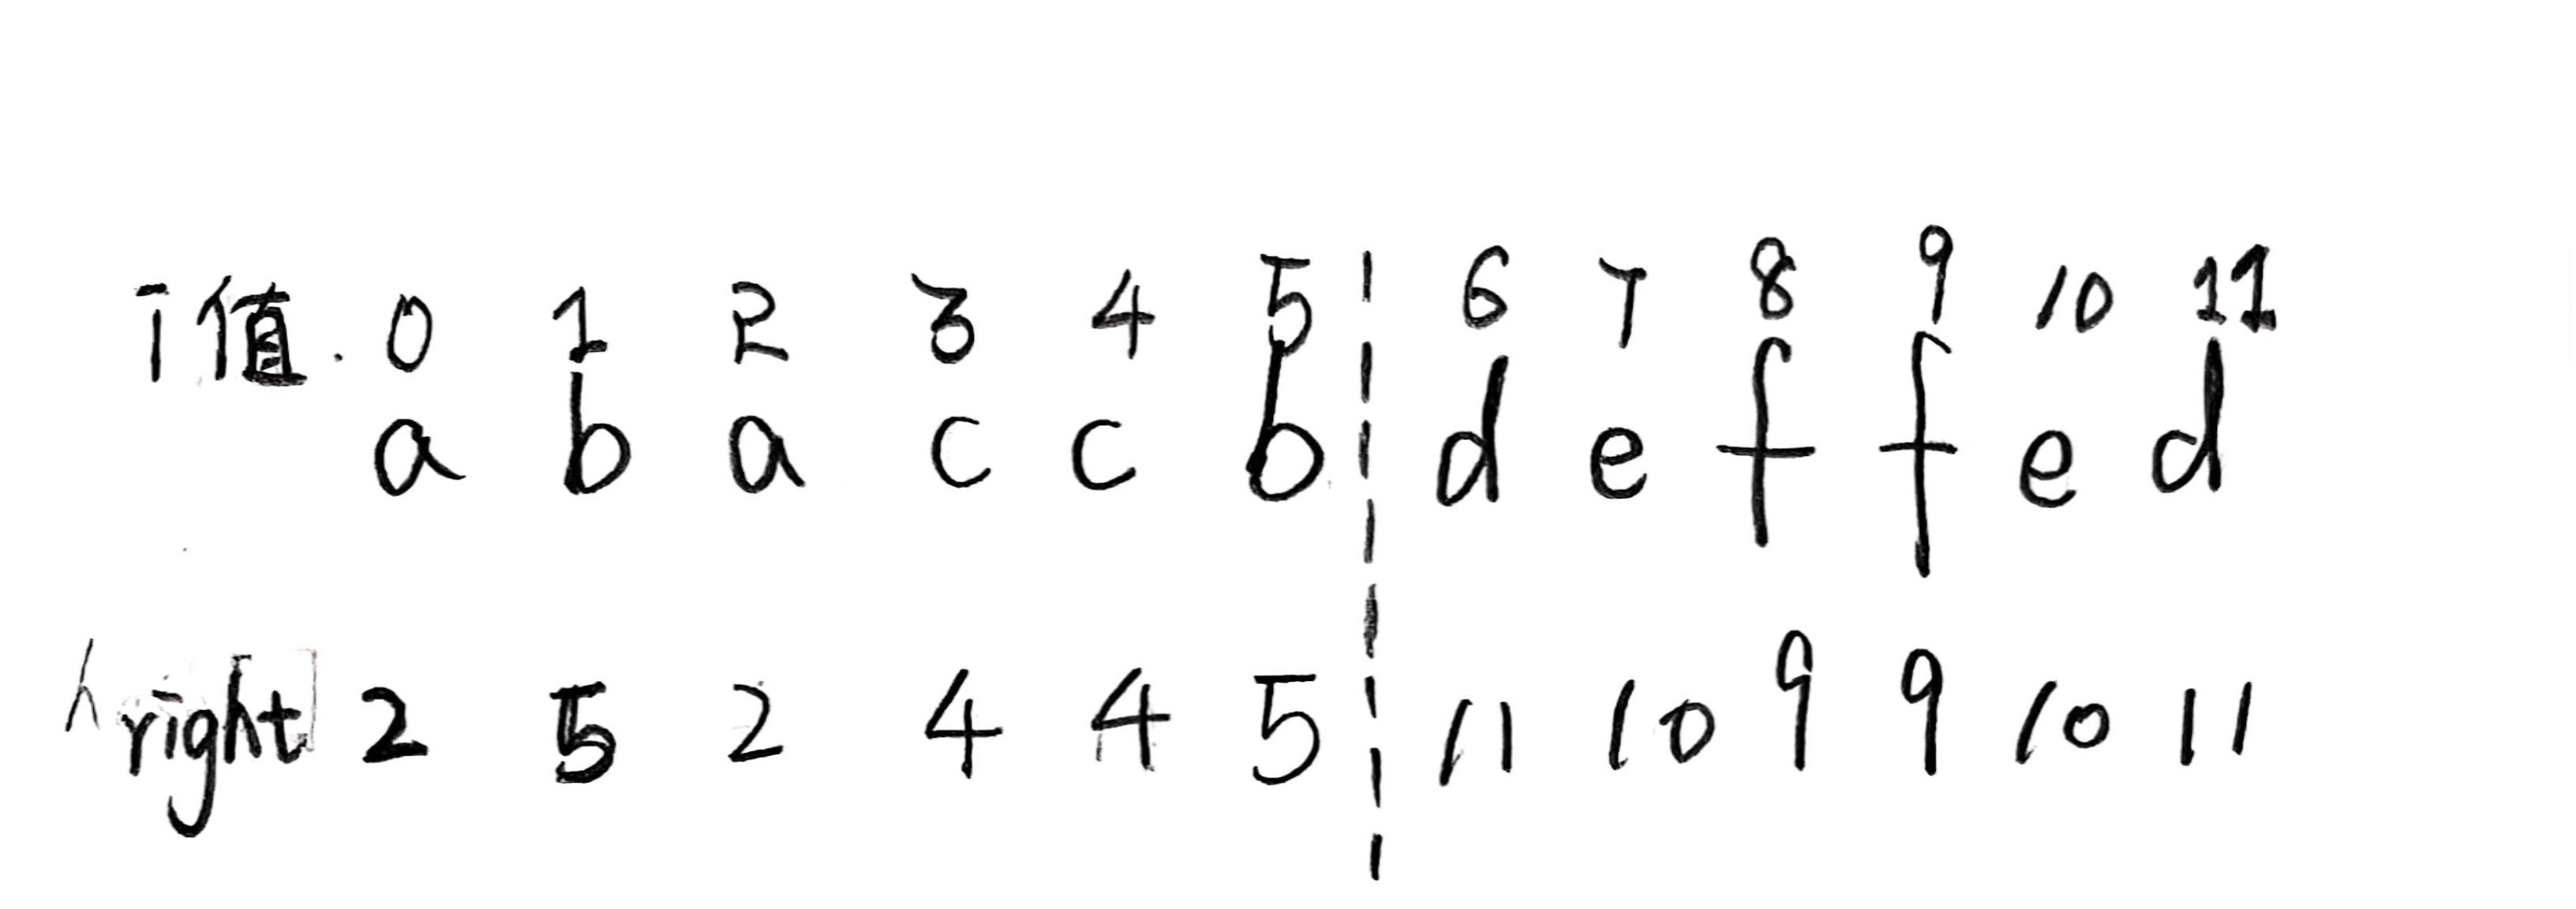 i值. 0 1 2 3 4 5 6 7 8 9 10 11
a b a c c b d e f f e d
right 2 5 2 4 4 5 11 10 9 9 10 11